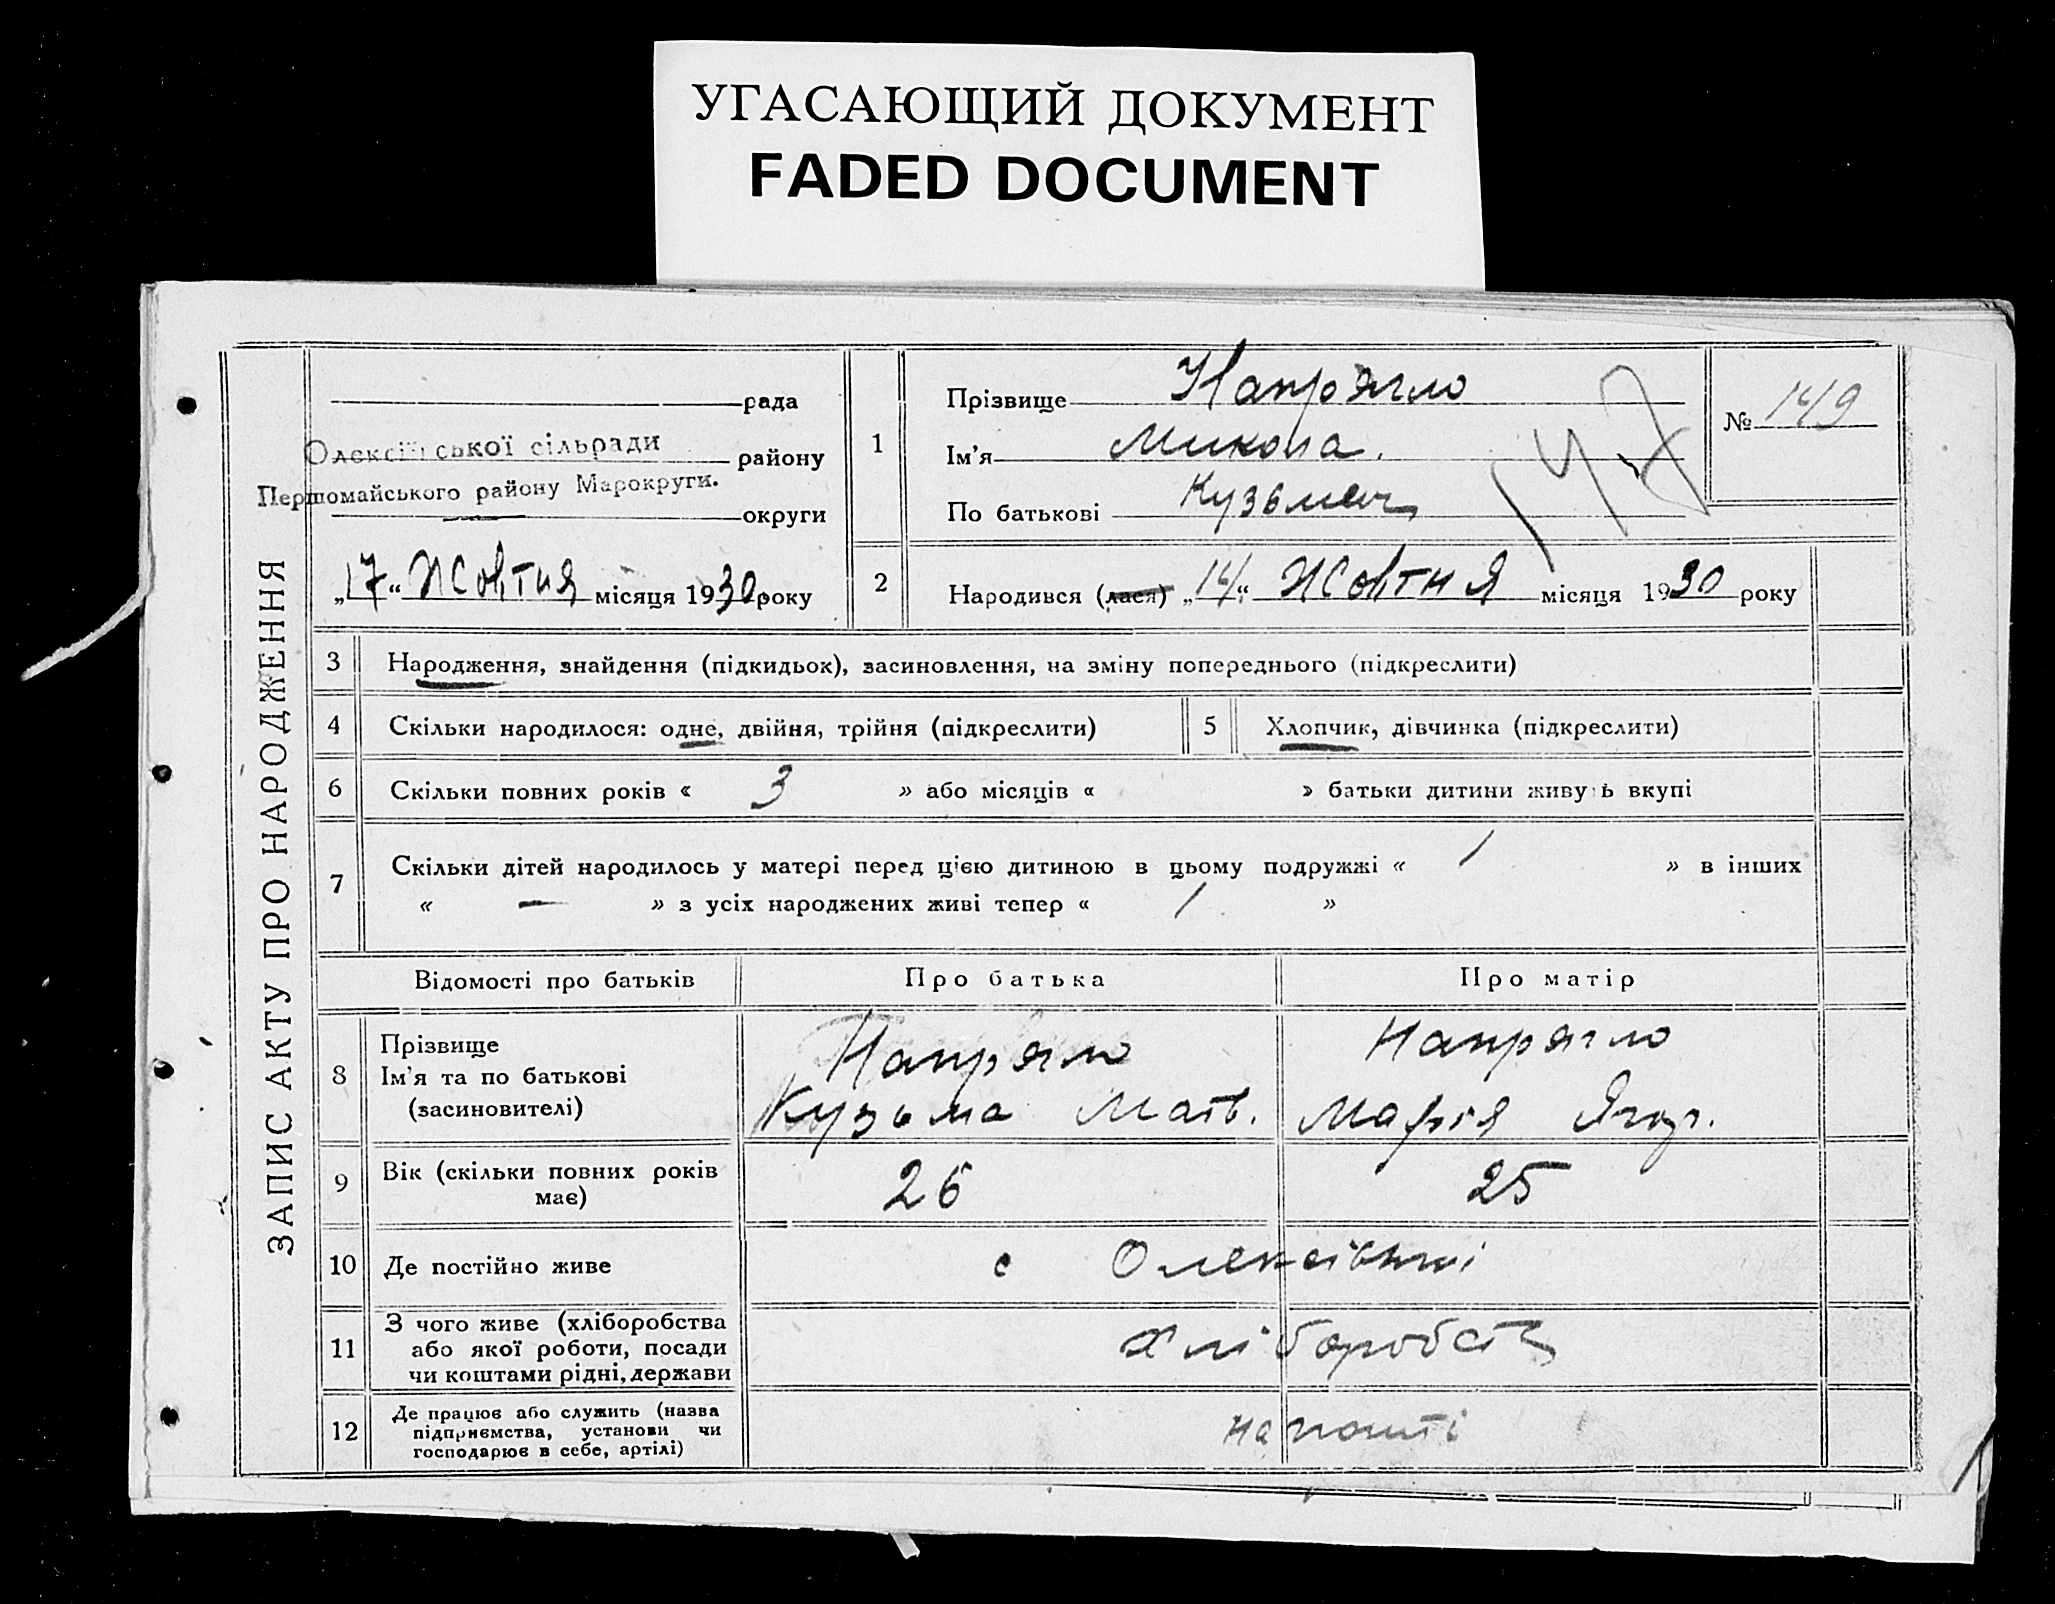 УГАСАЮЩИЙ ДОКУМЕНТ
FADED DOCUMENT
ЗАПИС АКТУ ПРО НАРОДЖЕННЯ
рада
Олексіївської сільради району
Першомайського району Марокруги.
округи
„17“ Жовтня місяця 1930 року
1
Прізвище Напрягло
Ім’я Микола.
По батькові Кузьмич
№ 149
2 Народився (лася) „14“ Жовтня місяця 1930 року
3 Народження, знайдення (підкидьок), засиновлення, на зміну попереднього (підкреслити)
4 Скільки народилося: одне, двійня, трійня (підкреслити) 5 Хлопчик, дівчинка (підкреслити)
6 Скільки повних років « 3 » або місяців « » батьки дитини живуть вкупі
7 Скільки дітей народилось у матері перед цією дитиною в цьому подружжі « 1 » в інших
« — » з усіх народжених живі тепер « 1 »
Відомості про батьків Про батька Про матір
8 Прізвище
Ім’я та по батькові
(засиновителі)
Напрягло
Кузьма Матв.
Напрягло
Марія
9 Вік (скільки повних років
має)
26 25
10 Де постійно живе с
11 З чого живе (хліборобства
або якої роботи, посади
чи коштами рідні, держави
12 Де працює або служить (назва
підприємства, установи чи
господарює в себе, артілі)